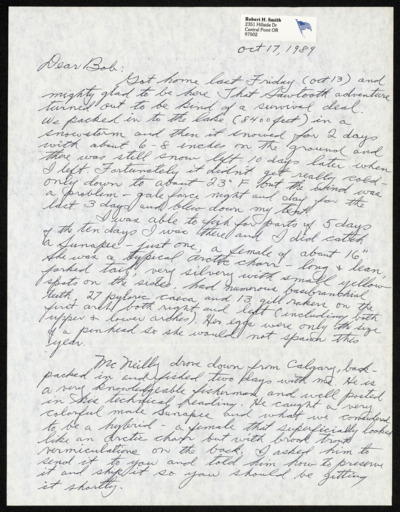 Robert H. Smith
2351 Hillside Dr
Central Point OR
97502
Oct 17, 1989
Dear Bob:
Got home last Friday (Oct 13) and
mighty glad to be here. That Sawtooth adventure
turned out to be kind of a survival deal.
We packed in to the lake (8400 feet) in a
snowstorm and then it snowed for 2 days
with about 6-8 inches on the ground and
there was still snow left 10 days later when
I left. Fortunately it didn't get really cold -
only down to about 23° F but the wind was
a problem - gale force night and day for the
last 3 days and blew down my tent.
I was able to fish for parts of 5 days
of the ten days I was there and I did catch
a Sunapee - just one, a female of about 16".
She was a typical Arctic charr - long & lean,
forked tail, very silvery with small yellow
spots on the sides. had numerous basibranchial
teeth, 27 pyloric caeca and 13 gill rakers on the
first arch both right and left (including both
upper & lower arches). Her eggs were only the size
of a pinhead so she would not spawn this
year.
McNeilly drove down from Calgary, back-
packed in and fished two days with me. He is
a very knowledgeable fisherman and well posted
in the technical reading. He caught a very
colorful male Sunapee and what we considered
to be a hybrid - a female that superficially looked
like an arctic charr but with brook trout
vermiculations on the back. I asked him to
send it to you and told him how to preserve
it and ship it so you should be getting
it shortly.